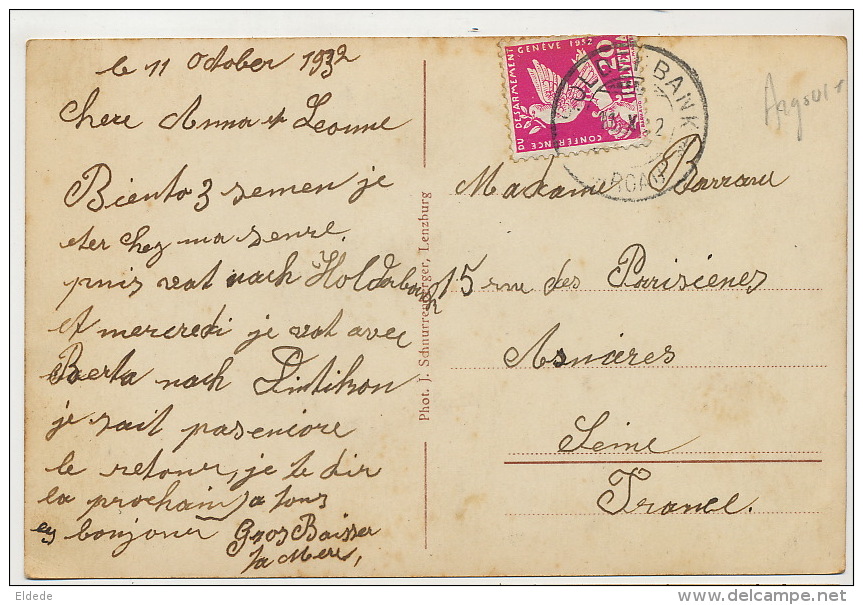 le 11 October 1932
Chere Anna et Leonne
Biento 3 semen je
eter chez ma senre.
puis vat nach Holderbank
et mercredi je vat avec
Berta nach Dintikon
je sait pasencore
le retour, je te dir
la prochain, a tous
bonjour Gros Baisser
ta Mere,
Phot. J. Schnurrenberger, Lenzburg
CONFERENCE DU DESARMEMENT GENÈVE 1932
HELVETIA
20
BANK
Madame Barrau
15 rue des Parisiènes
Asnières
Seine
France.
Eldede
delcampe.net